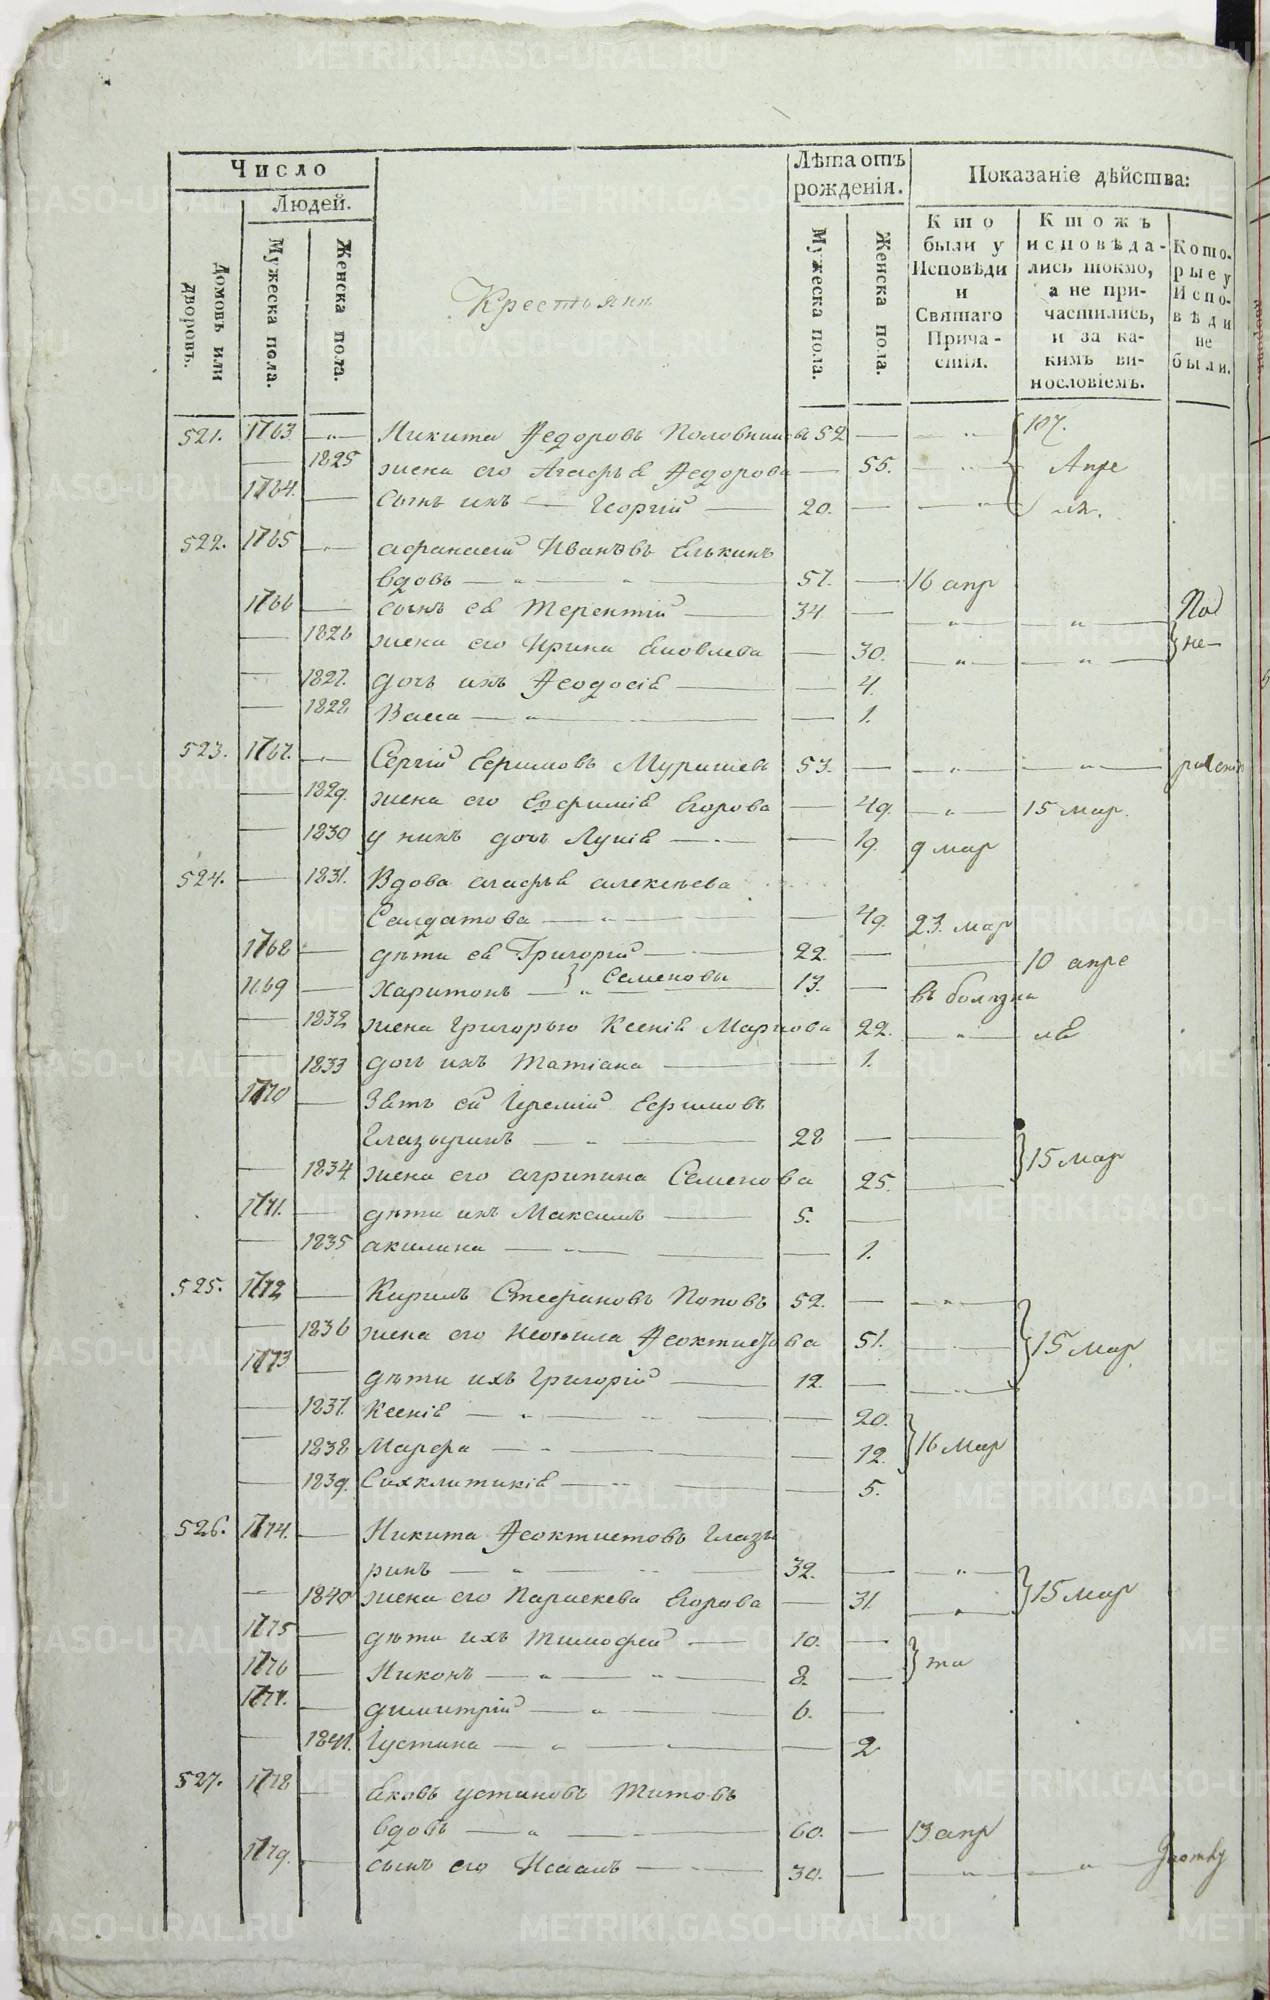 Число
Людей.
Домовъ или дворовъ.
Мужеска пола.
Женска пола.
Крестьяне
Лѣта отъ рожденія.
Мужеска пола.
Женска пола.
Показаніе дѣйства:
Кто были у Исповѣди и Святаго Прича-стія.
Ктожъ исповѣда-лись токмо, а не при-частились, и за ка-кимъ ви-нословіемъ.
Кото-рые у Испо-вѣди не были.
521. 1763. — Никита Ѳедоровъ 52 — — „ 107.
— 1825 жена его Агафья Ѳедорова — 55. — „ Апре
1764. — сынъ ихъ — Георгій — 20. — — „ ля.
522. 1765 — Афанасій Ивановъ Елькинъ
вдовъ — „ — „ — 57. — 16 апр
1766 — сынъ ея Терентій — 34 — — „ — „ —
— 1826 жена его Ирина Яковлева — 30. — „ — „ — не-
— 1827. дочь ихъ Ѳеодосія — — 4.
— 1828 Васса — „ — — 1.
523. 1767. — Сергій Ефимовъ 53. — — „ — „ —
— 1829. жена его Евфимія Егорова — 49. — „ — 15 мар.
— 1830 у нихъ дочь Лукія — — 19. 9 мар
524. — 1831. Вдова агафья алексѣева
Салдатова — „ — — 49. 23. мар
1768 — дѣти ея Григорій — 22. — — 10 апре
1169 — Харитонъ — } „ Семеновы 13. — въ болѣзни
— 1832 жена Григорью Ксенія Маркова 22. — „ — ля
— 1833 дочь ихъ Татіана — — 1.
1770 — Зять ей Іеремій Ефимовъ
Глазыринъ — „ — 28 — —
— 1834 жена его агрипина Семенова 25. — } 15 мар
1771. — дѣти ихъ Максимъ — 5. —
— 1835 акилина — „ — — 1.
525. 1772 — Кирилъ Стефановъ Поповъ 52. — — „ —
— 1836 жена его Неонила Ѳеоктистова 51. — } 15 мар
1773 — дѣти ихъ Григорій — 12. — — „ —
— 1837. Ксенія — „ — — 20.
— 1838 Марфа — „ — — 12. } 16 мар
— 1839. Синклитикія — „ — — 5.
526. 1774. — Никита Ѳеоктистовъ Глазы
ринъ — „ — „ — 32. — — „ —
— 1840 жена его Параскева Егорова — 31. — „ — } 15 мар
1775 — дѣти ихъ Тимофей — 10. —
1776 — Никонъ — „ — „ — 8. — } та
1777. — димитрій — „ — 6. —
— 1841. Іустина — „ — — 2
527. 1778 — Яковъ устиновъ Титовъ
вдовъ — „ — 60. — 13 апр
1779. — сынъ его Исаакъ — 30. — — „ — „ —
METRIKI.GASO-URAL.RU